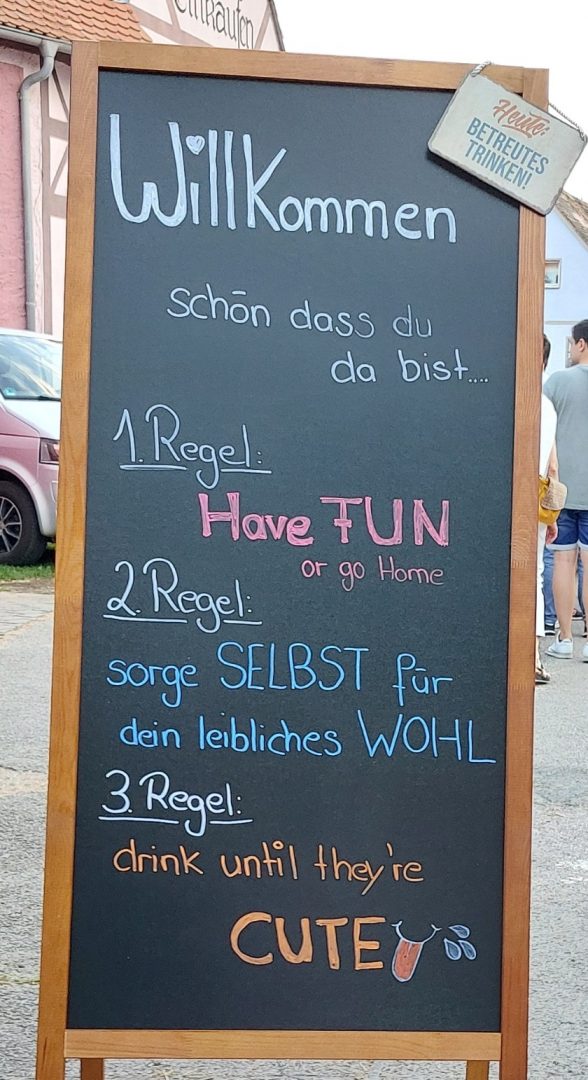 einkaufen
Heute:
BETREUTES
TRINKEN!
Willkommen
schön dass du
da bist....
1. Regel:
Have FUN
or go Home
2. Regel:
sorge SELBST für
dein leibliches WOHL
3. Regel:
drink until they're
CUTE